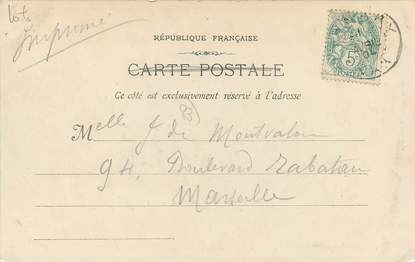 Imprimé
RÉPUBLIQUE FRANÇAISE
CARTE POSTALE
Ce côté est exclusivement réservé à l'adresse
Melle J de Montvalon
94, Boulevard Rabatau
Marseille